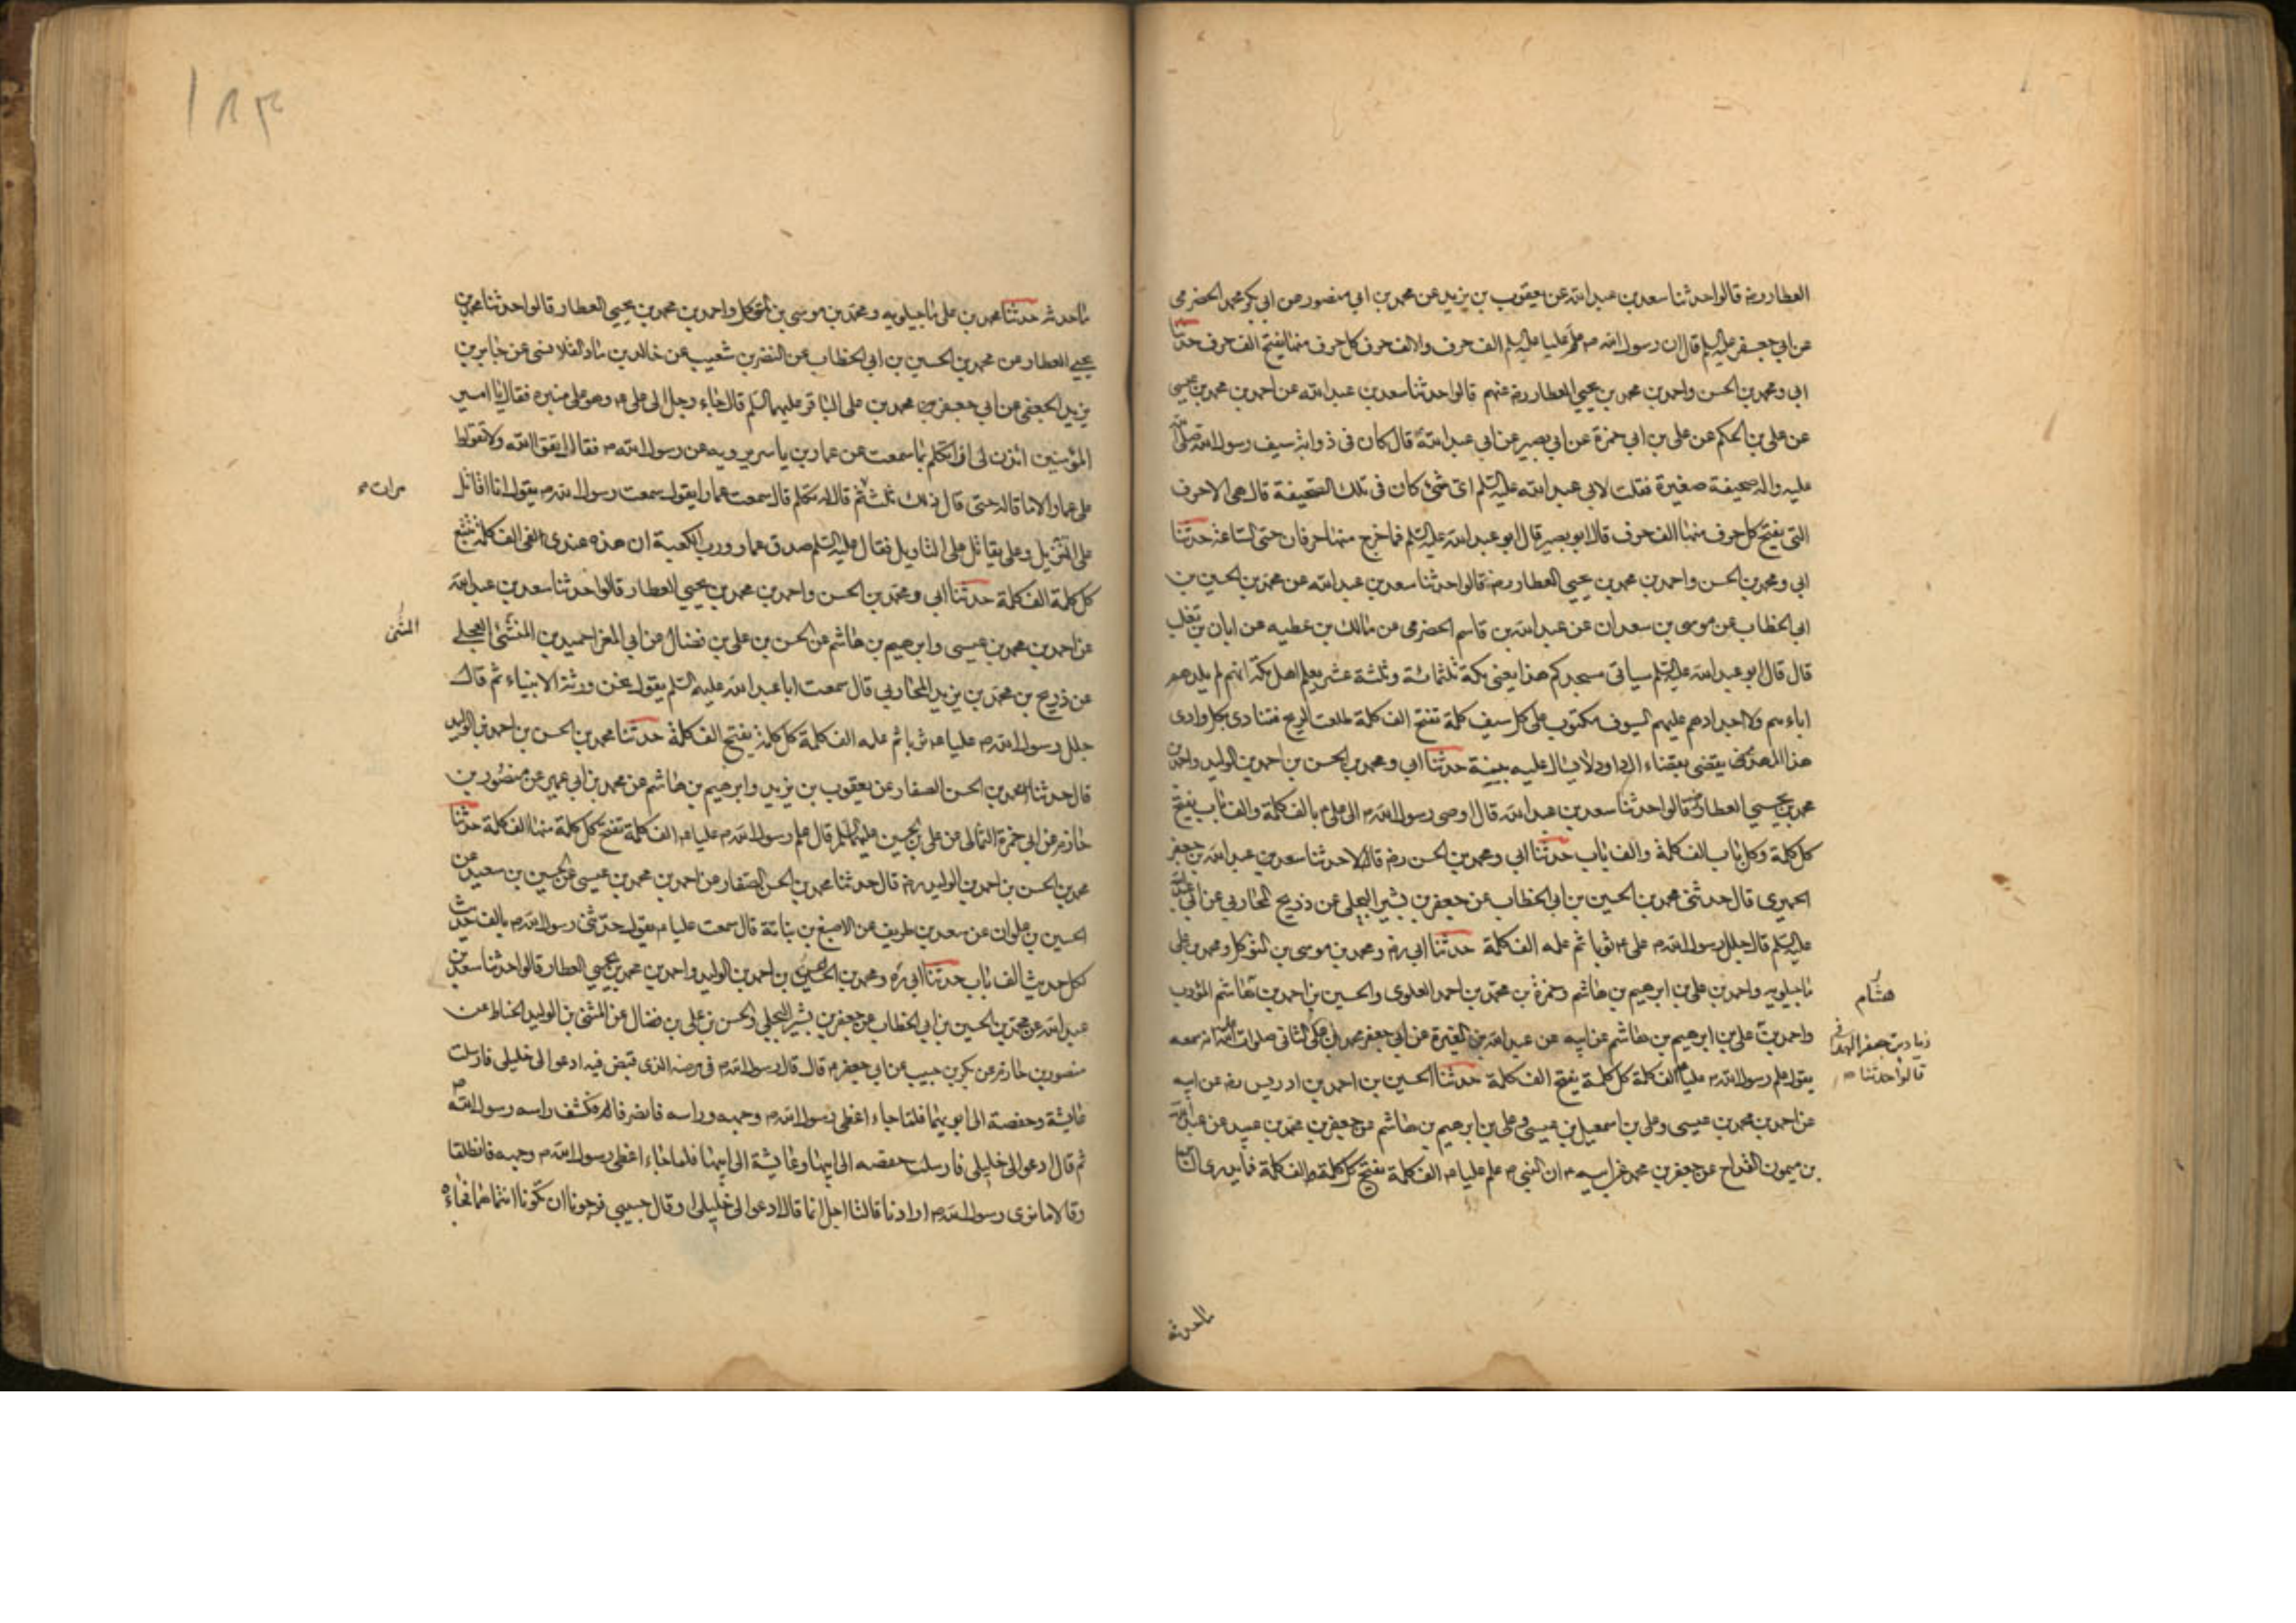 العطار رضه قالوا حدثنا سعد بن عبد الله عن يعقوب بن يزيد عن محمد بن ابي منصور عن ابي بكر محمد الحضرمي
عن ابي جعفر عليه السلم قال ان رسول الله ص علم عليا عليه السلم الف حرف والالف حرف كل حرف منها يفتح الف حرف حدثنا
ابي ومحمد بن الحسن واحمد بن محمد بن يحيى العطار رضه عنهم قالوا حدثنا سعد بن عبد الله عن احمد بن محمد بن عيسى
عن علي بن الحكم عن علي بن ابي حمزة عن ابي بصير عن ابي عبد الله قال كان في ذوابة سيف رسول الله صلى الله
عليه واله صحيفة صغيرة فقلت لابي عبد الله عليه السلم اى شئ كان في تلك الصحيفة قال هي الاحرف
التي يفتح كل حرف منها الف حرف قال ابو بصير قال ابو عبد الله عليه السلم فما خرج منها حرفان حتى الساعة حدثنا
ابي ومحمد بن الحسن واحمد بن محمد بن يحيى العطار رضه قالوا حدثنا سعد بن عبد الله عن محمد بن الحسين بن
ابي الخطاب عن موسى بن سعدان عن عبد الله بن قاسم الحضرمي عن مالك بن عطيه عن ابان بن تغلب
قال قال ابو عبد الله عليه السلم سياتي مسجدكم هذا يعني مكة ثلثمائة وثلثة عشر يعلم اهل مكة انهم لم يلدهم
اباءهم ولا اجدادهم عليهم السيوف مكتوب على كل سيف كلمة تفتح الف كلمة الريح فتنادى بكل وادى
هذا المهدى يقضى بقضاء ال داود لا يسال عليه بينة حدثنا ابي ومحمد بن الحسن بن احمد بن الوليد واحمد بن
محمد بن يحيى العطار رضه قالوا حدثنا سعد بن عبد الله قال اوصى رسول الله ص الى علي ع بالف كلمة والف باب يفتح
كل كلمة وكل باب الف كلمة والف باب حدثنا ابي ومحمد بن الحسن رضه قالا حدثنا سعد بن عبد الله بن جعفر
الحميري قال حدثني محمد بن الحسين بن ابي الخطاب عن جعفر بن بشير البجلي عن ذريح المحاربي عن ابي عبد الله
عليه السلم قال جلل رسول الله ص علي ع ثوبا ثم علمه الف كلمة حدثنا ابي رضه ومحمد بن موسى بن المتوكل ومحمد بن علي
ماجيلويه واحمد بن علي بن ابرهيم بن هاشم وحمزة بن محمد بن احمد العلوي والحسين بن احمد بن هاشم المؤدب
هشام
واحمد بن علي بن ابرهيم بن هاشم عن ابيه عن عبد الله بن المغيرة عن ابي جعفر محمد بن علي الثاني صلوات الله انه سمعه
زياد بن جعفر الهمداني
قالوا حدثنا
يقول علم رسول الله ص عليا ع الف كلمة كل كلمة يفتح الف كلمة حدثنا الحسين بن احمد بن ادريس رضه عن ابيه
عن احمد بن محمد بن عيسى وعلي بن اسمعيل بن عيسى وعلي بن ابرهيم بن هاشم عن جعفر بن محمد بن عبيد عن عبد الله
بن ميمون القداح عن جعفر بن محمد عن ابيه ع ان النبي ص علم عليا ع الف كلمة يفتح كل كلمة الف كلمة فما يدرى الناس
ما حدثه
١٨٣
ما حدثه حدثنا محمد بن علي ماجيلويه ومحمد بن موسى بن المتوكل واحمد بن محمد بن يحيى العطار قالوا حدثنا محمد بن
يحيى العطار عن محمد بن الحسين بن ابي الخطاب عن النضر بن شعيب عن خالد بن ماد القلانسي عن جابر بن
يزيد الجعفي عن ابي جعفر محمد بن علي الباقر عليهما السلم قال جاء رجل الى علي ع وهو على منبره فقال يا امير
المؤمنين ائذن لى ان اتكلم بما سمعت عن عمار بن ياسر يرويه عن رسول الله ص فقال اتقوا الله ولا تقولوا
على عمار الا ما قاله حتى قال ذلك ثلث ثم قال له تكلم قال سمعت عمارا يقول سمعت رسول الله ص يقول انا اقاتل
مرات
على التنزيل وعلي يقاتل على التاويل فقال عليه السلم صدق عمار ورب الكعبة ان هذه عندى الف كلمة تتبع
كل كلمة الف كلمة حدثنا ابي ومحمد بن الحسن واحمد بن محمد بن يحيى العطار قالوا حدثنا سعد بن عبد الله
عن احمد بن محمد بن عيسى وابرهيم بن هاشم عن الحسن بن علي بن فضال عن ابي المغرا حميد بن المثنى العجلي
المثنى
عن ذريح بن محمد بن يزيد المحاربي قال سمعت ابا عبد الله عليه السلم يقول نحن ورثة الانبياء ثم قال
جلل رسول الله ص عليا ع ثوبا ثم علمه الف كلمة كل كلمة يفتح الف كلمة حدثنا محمد بن الحسن بن احمد بن الوليد
قال حدثنا محمد بن الحسن الصفار عن يعقوب بن يزيد وابرهيم بن هاشم عن محمد بن ابي عمير عن منصور بن
حازم عن ابي حمزة الثمالي عن علي بن الحسين عليهما السلم قال علم رسول الله ص عليا ع الف كلمة تفتح كل كلمة منها الف كلمة حدثنا
محمد بن الحسن بن احمد بن الوليد رضه قال حدثنا محمد بن الحسن الصفار عن احمد بن محمد بن عيسى عن الحسين بن سعيد عن
الحسين بن علوان عن سعد بن طريف عن الاصبغ بن نباتة قال سمعت عليا ع يقول حدثني رسول الله ص بالف حديث
لكل حديث الف باب حدثنا ابي ره ومحمد بن الحسن بن احمد بن الوليد واحمد بن محمد بن يحيى العطار قالوا حدثنا سعد بن
عبد الله عن محمد بن الحسين بن ابي الخطاب عن جعفر بن بشير البجلي والحسن بن علي بن فضال عن المثنى بن الوليد الحناط عن
منصور بن حازم عن بكر بن حبيب عن ابي جعفر ع قال قال رسول الله ص في مرضه الذى قبض فيه ادعوا الى خليلى فارسلت
عايشة وحفصة الى ابويهما فلما جاءا غطى رسول الله ص وجهه وراسه فانصرفا فكشف راسه رسول الله ص
ثم قال ادعوا لى خليلى فارسلت حفصه الى ابيها وعايشة الى ابيها فلما جاءا غطى رسول الله ص وجهه فانطلقا
وقالا ما نرى رسول الله ص ارادنا قالتا اجل انما قال ادعوا لى خليلى او قال حبيبي فرجونا ان تكونا انتما هما فجاءه